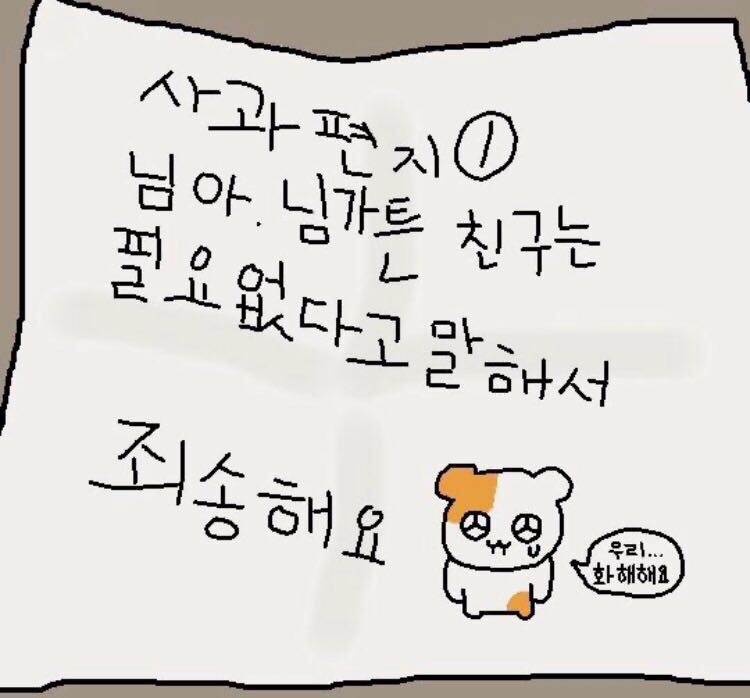 사과편지①
님아. 님가튼 친구는
필요없다고말해서
죄송해요
우리...
화해해요